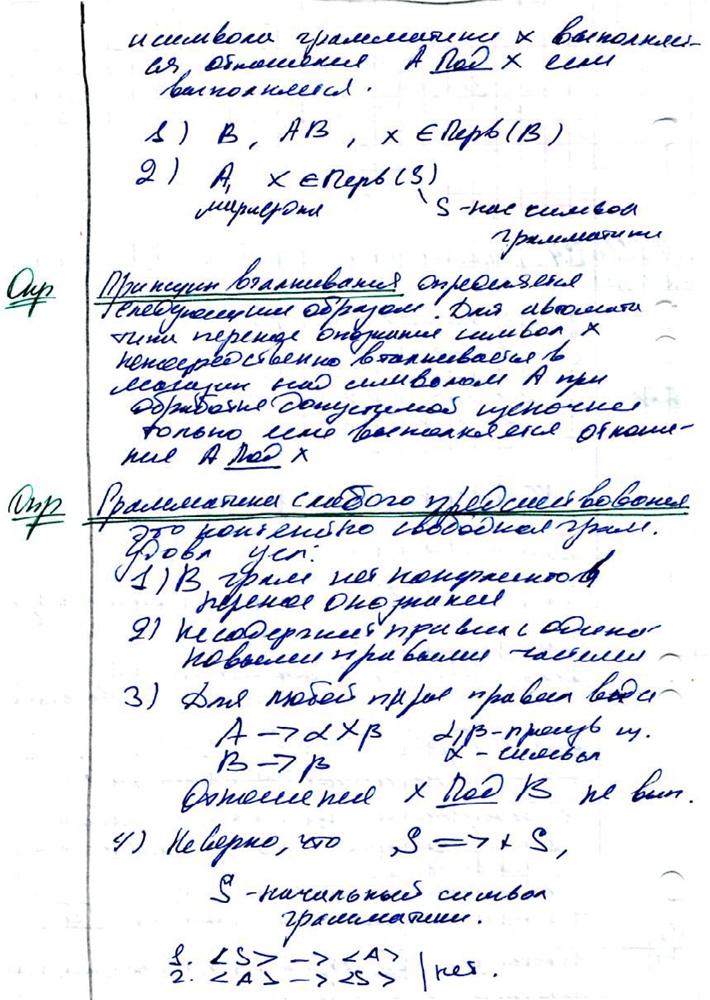 и символа грамматики x выполняет-
ся, отношения A Под x если
выполняется.
1) B, AB, x ∈ Перв(B)
2) A, x ∈ Перв(S)
маркер дна S - нач символ
грамматики
Опр Принцип вталкивания определяется
следующим образом. Для автомата
типа перенос опознание символ x
непосредственно вталкивается в
магазин над символом A при
обработке допустимой цепочки
только если выполняется отноше-
ние A Под x
Опр Грамматика слабого предшествования
это контекстно свободная грам.
удовл усл:
1) В грам нет конфликтов
перенос опознание
2) Не содержит правил с одина-
ковыми правыми частями
3) Для любой пары правил вида
A -> αXβ α,β - произв ц.
B -> β x - символ
Отношения x Под B не вып.
4) Неверно, что S =>+ S,
S - начальный символ
грамматики.
1. <S> -> <A>
2. <A> -> <S> | нет.